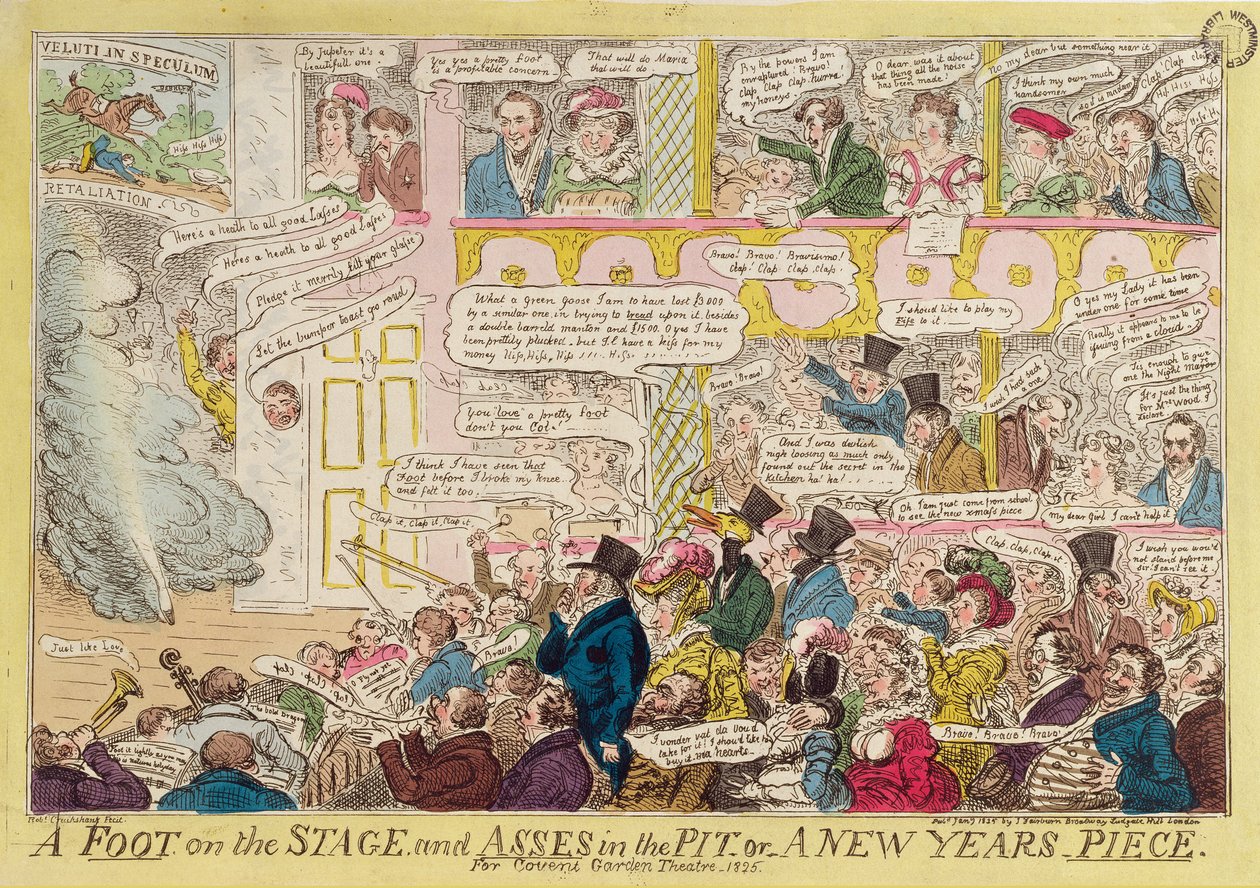 VELUTI IN SPECULUM
Hiss Hiss Hiss
RETALIATION
By Jupeter it's a
beautifull one.
Yes yes a pretty foot
is a profitable concern
That will do Maria
that will do.
By the powers I am
enraptured! Bravo!
clap clap Clap. hurra
my honeys
O dear was it about
that thing all the noise
has been made!
No my dear but something near it
I think my own much
handsomer
so it is madam
Clap Clap clap
Hiss Hiss
Hiss
WESTMINSTER
Here's a heath to all good Lasses
Heres a heath to all good Lasses
Pledge it merrily fill your glasse
Let the bumper toast go roud
Bravo! Bravo! Bravisimo!
Clap! Clap. Clap, clap.
What a Green Goose I am to have lost £3000
by a similar one, in trying to tread upon it, besides
a double barreld manton and £1500. O yes I have
been prettily plucked. but I'l have a hiss for my
money Hiss, Hiss, Hiss
I should like to play my
Fife to it
O yes my Lady it has been
under one for some time
Really it appears to me to be
veiwing from a cloud.
Tis enough to give
one the Night Mayor
It's just the thing
for Mrs Wood I
declare
Bravo! Bravo!
I wish I had such
a one
You "love" a pretty foot
don't you Col.
And I was devlish
nigh loosing as much only
found out the secret in the
Kitchen ha! ha!
I think I have seen that
Foot before I broke my knee
and felt it too.
Oh I am just come from school
to see the new xmass piece
My dear Girl I can't help it
Clap it, Clap it, Clap it.
Clap, clap, Clap, it
I wish you wou'd
not stand before me
Sir. I can't see it
Just like Love
Bravo!
Clap, Clap, Clap
Fly not yet
The bold Dragoon
I vonder vat da voud
take for it! I shoud like to
buy it. ma hearts
Bravo! Bravo! Bravo!
Robt. Cruikshank Fecit.
Pubd. Jany 1825 by J Fairburn Broadway Ludgate Hill London
A FOOT on the STAGE and ASSES in the PIT or A NEW YEARS PIECE.
For Covent Garden Theatre - 1825.